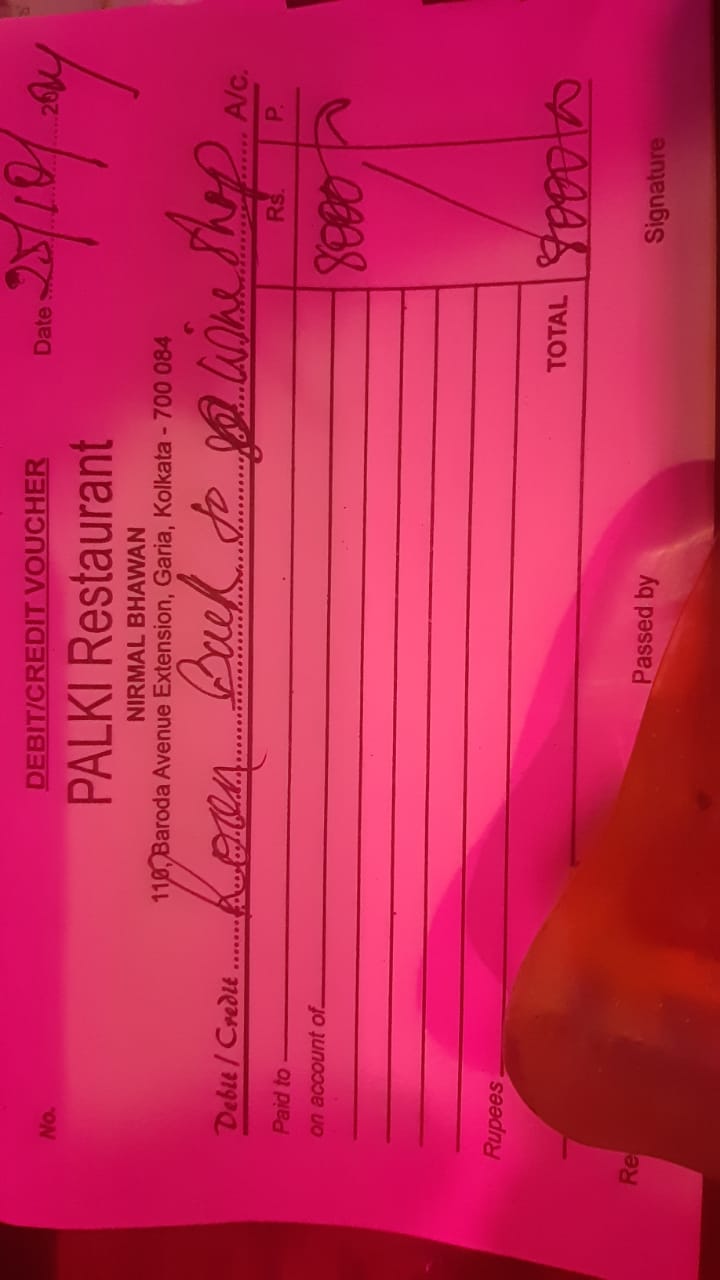 DEBIT/CREDIT VOUCHER
No. Date 25/10/2024
PALKI Restaurant
NIRMAL BHAWAN
110, Baroda Avenue Extension, Garia, Kolkata - 700 084
Debit / Credit Loan Back to Wine Shop A/c.
Paid to Rs. P.
on account of 8000
Rupees
TOTAL 8000
Re Passed by Signature